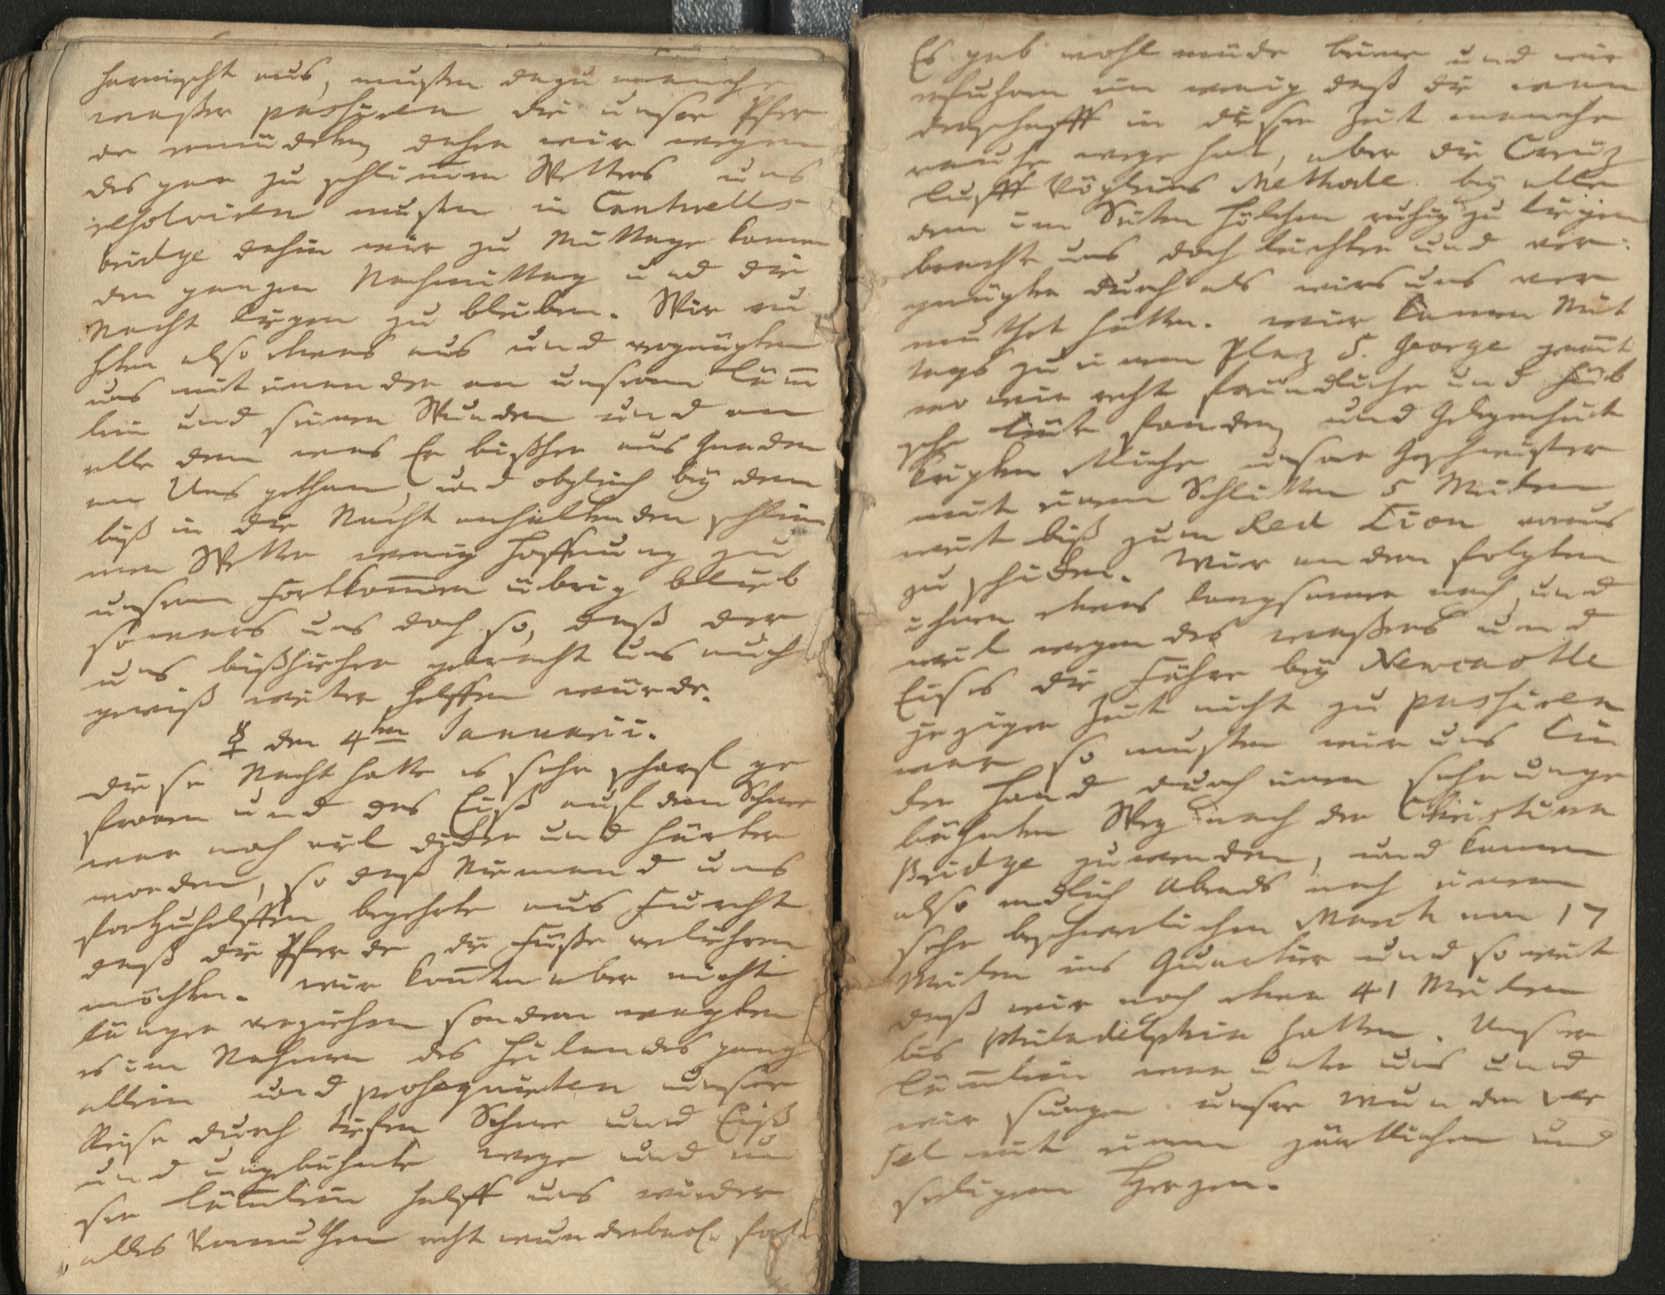 harnischt aus, musten dazu manche
waßer passiren die unsre Pfer
de ermüdeten daher wir wegen
des gar zu schlimmen Wetters uns
resolviren musten in Cantwells-
bridge dahin wir zu Mittage kamen
den ganzen Nachmittag und die
Nacht liegen zu bleiben. Wir ru
heten also etwas aus und vergnügten
uns mit einander an unserm Läm̄
lein und seinen Wunden und an
alle dem was Er bißher aus Gnaden
an Uns gethan, und obgleich bey dem
biß in die Nacht anhaltenden schlim
men Wetter wenig Hoffnung zu
unserm Fortkom̄en übrig blieb
so wars uns doch so, daß der
uns bißhieher gebracht uns auch
gewiß weiter helffen würde.
☿ den 4ten Januarii.
Diese Nacht hatte es sehr scharf ge
froren und das Eiß auf dem Schnee
war noch viel dicker und härter
worden, so daß Niemand uns
fortzuhelffen begehrte aus Furcht
daß die Pferde die Füße verliehren
möchten. Wir kon̄ten aber nicht
länger verziehen sondern wagten
es im Nahmen des Heilandes ganz
allein und prosequirten unsre
Reise durch tiefen Schnee und Eiß
und ungebähnte Wege und un
ser Läm̄lein halff uns wieder
alles Vermuthen recht wunderbar fort
Es gab wohl müde Beine und wir
erfuhren ein wenig daß die wan
derschafft in dieser Zeit manche
rauhe wege hat, aber die Creuz
lufft Vögleins Methode bey alle
dem im Seiten Hölchen ruhig zu liegen
brachte uns doch leichter und ver-
gnügter durch als wirs uns ver
muthet hätten. wir kamen Mit
tags zu einem Plaz S. George genan̄t
wo wir recht freundliche und hüb
sche Leute fanden und Gelegenheit
kriegten etliche unsrer Geschwister
mit einem Schlitten 5 Meilen
weit biß zum Red Lion voraus
zu schicken. Wir andern folgten
ihnen etwas langsamer nach, und
weil wegen des waßers und
Eises die Fähre bey Newcastle
jeziger Zeit nicht zu passiren
war so musten wir uns lin
ker Hand durch einen sehr unge
bähnten Weg nach der Christiana
Bridge zuwenden, und kamen
also endlich Abends nach einem
sehr beschwerlichen March von 17
Meilen ins Quartier und so weit
daß wir noch etwa 41 Meilen
bis Philadelphia hatten. Unser
Läm̄lein war unter uns und
wir sungen unsre Wunden
mit einem zärtlichen und
seeligen Herzen.